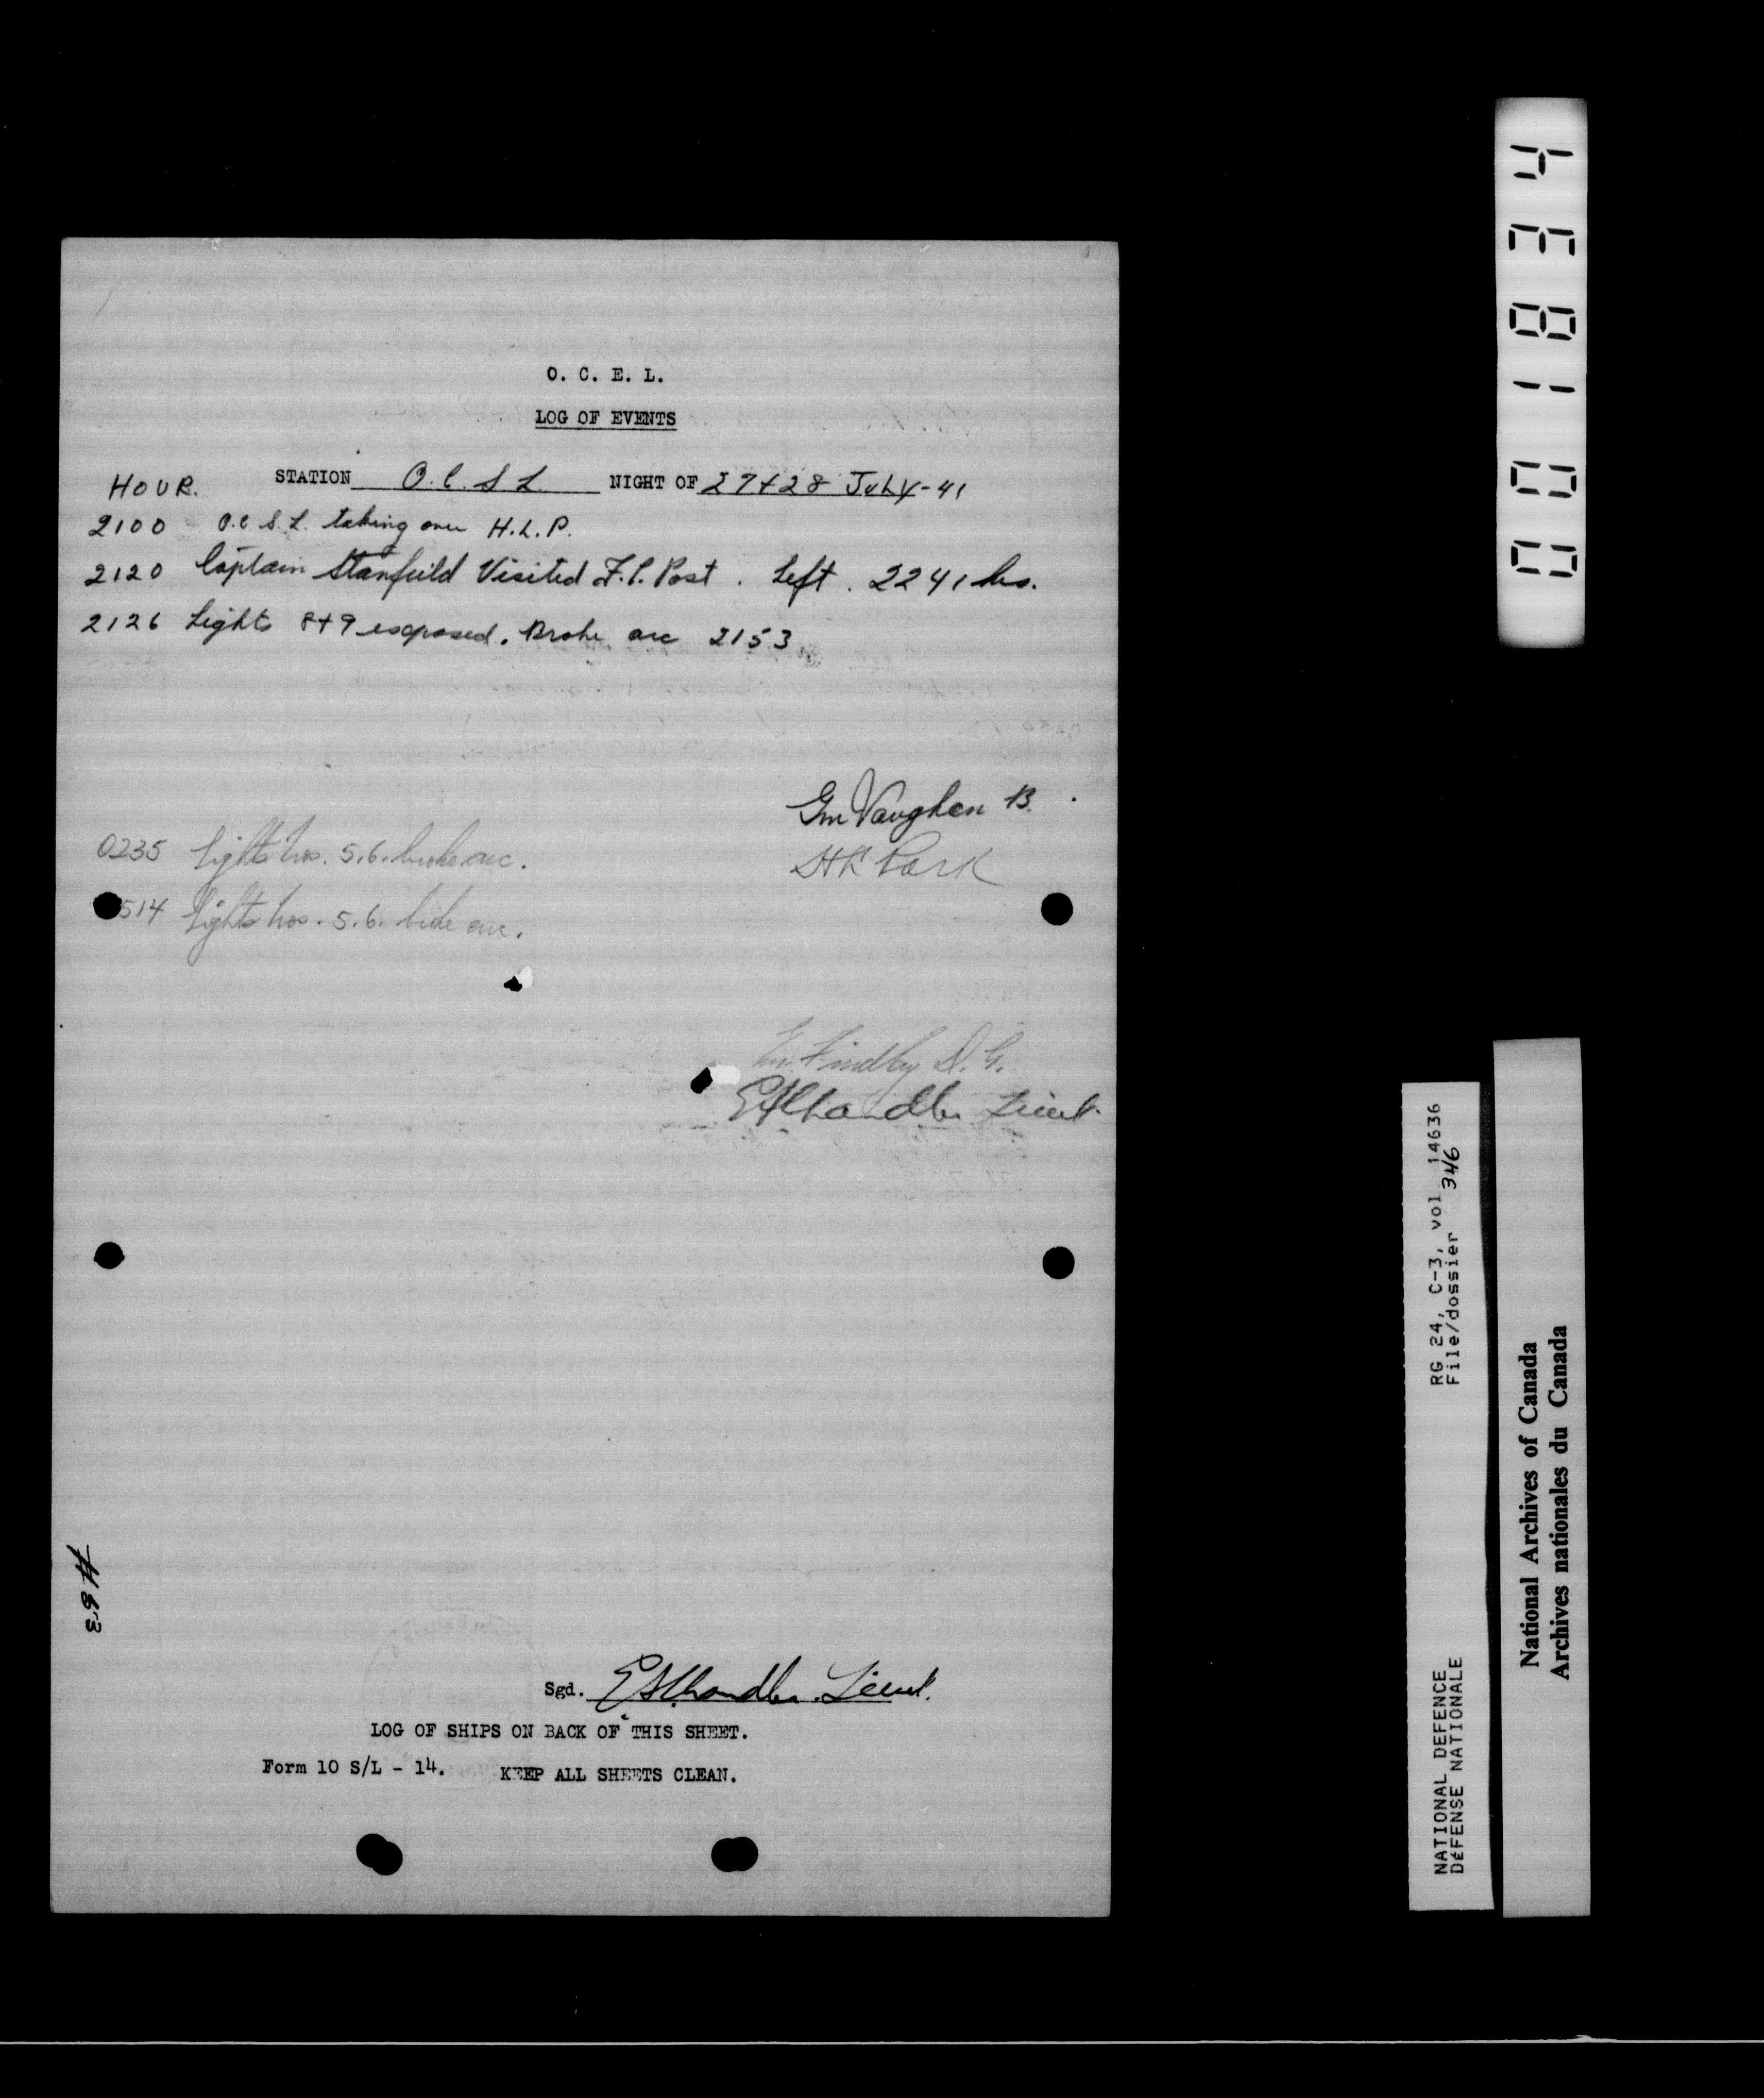 O. C. E. L.
LOG OF EVENTS
HOUR. STATION O.C.S.L. NIGHT OF 27+28 JULY-41
2100 O.C S.L. taking over H.L.P.
2120 Captain Stanfield Visited F.C. Post. Left. 2241 hrs.
2126 Lights 8+9 exposed. Broke arc 2153
Gnr Vaughan B.
Park
0235 Lights nos. 5.6. broke arc.
514 Lights nos. 5.6. broke arc.
Gnr. Findlay D. G.
Chandler Lieut.
H83
Sgd. Chandler. Lieut.
LOG OF SHIPS ON BACK OF THIS SHEET.
Form 10 S/L - 14. KEEP ALL SHEETS CLEAN.
001834
RG 24, C-3, vol 14636
File/dossier 346
NATIONAL DEFENCE
DÉFENSE NATIONALE
National Archives of Canada
Archives nationales du Canada